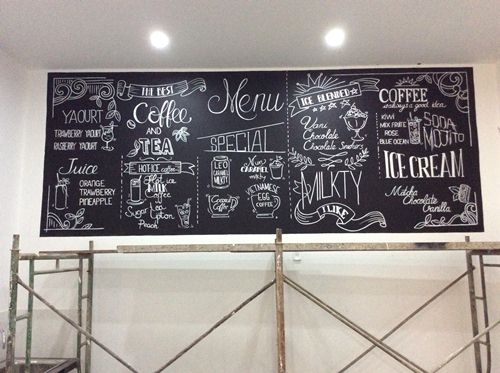 YAOURT
TRAWBERRY YAOURT
RASBERRY YAOURT
Juice
ORANGE
TRAWBERRY
PINEAPPLE
THE BEST
Coffee
AND
TEA
HOT-ICE coffee
MILK
Sugar
Peach
Menu
SPECIAL
LEO
CARAMEL
Coconut
Coffee
CARAMEL
VIETNAMESE
EGG
COFFEE
ICE BLENDED
Vani
Chocolate
Chocolate
MILKTY
I LIKE
COFFEE
always a good idea
KIWI
MIX FRUITE
ROSE
BLUE OCEAN
SODA
MOJITO
ICE CREAM
Matcha
Chocolate
Vanilla